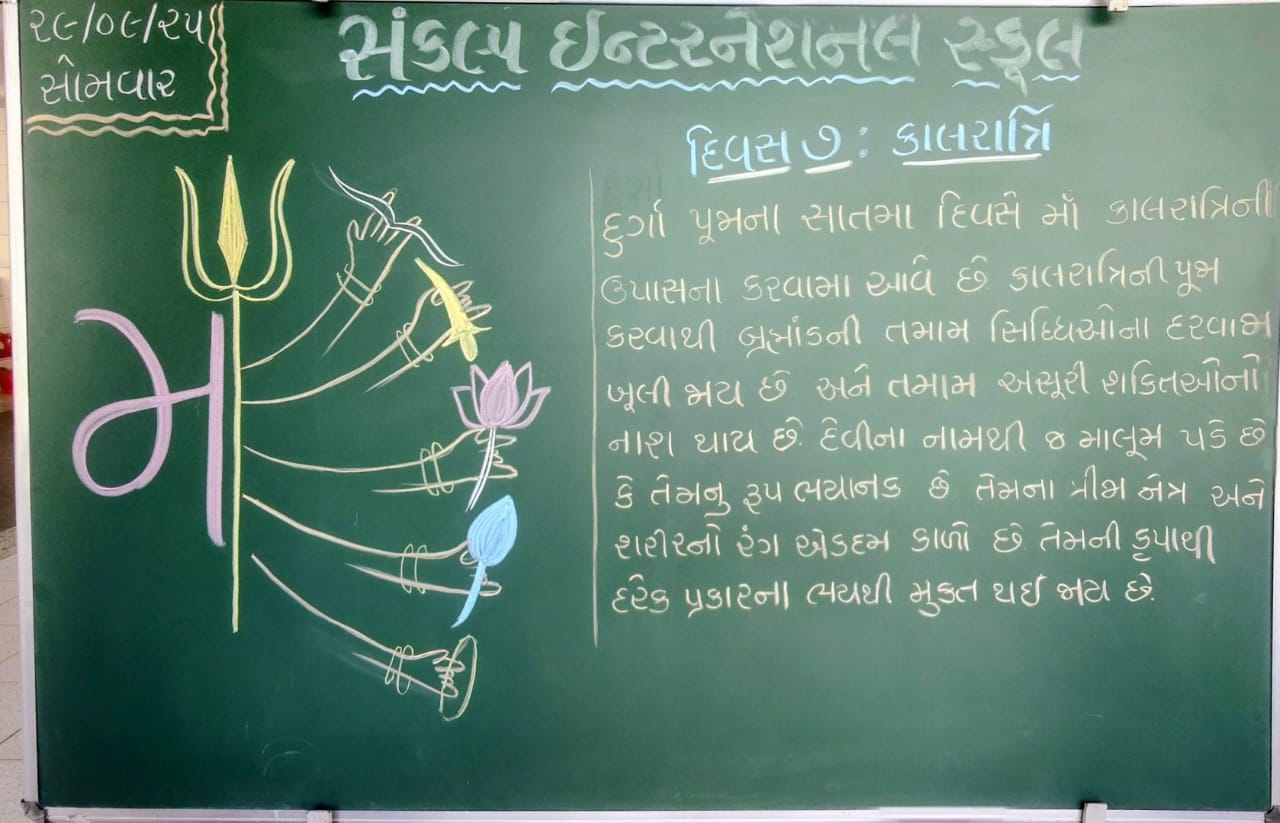 ૨૯/૦૯/૨૫
સોમવાર
સંકલ્પ ઈન્ટરનેશનલ સ્કૂલ
દિવસ ૭ : કાલરાત્રિ
દુર્ગા પૂજાના સાતમા દિવસે માઁ કાલરાત્રિની
ઉપાસના કરવામા આવે છે. કાલરાત્રિની પૂજા
કરવાથી બ્રહ્માંડની તમામ સિધ્ધિઓના દરવાજા
ખૂલી જાય છે અને તમામ અસૂરી શકિતઓનો
નાશ થાય છે. દેવીના નામથી જ માલૂમ પડે છે
કે તેમનુ રૂપ ભયાનક છે. તેમના ત્રીજા નેત્ર અને
શરીરનો રંગ એકદમ કાળો છે. તેમની કૃપાથી
દરેક પ્રકારના ભયથી મુક્ત થઈ જાય છે.
માઁ